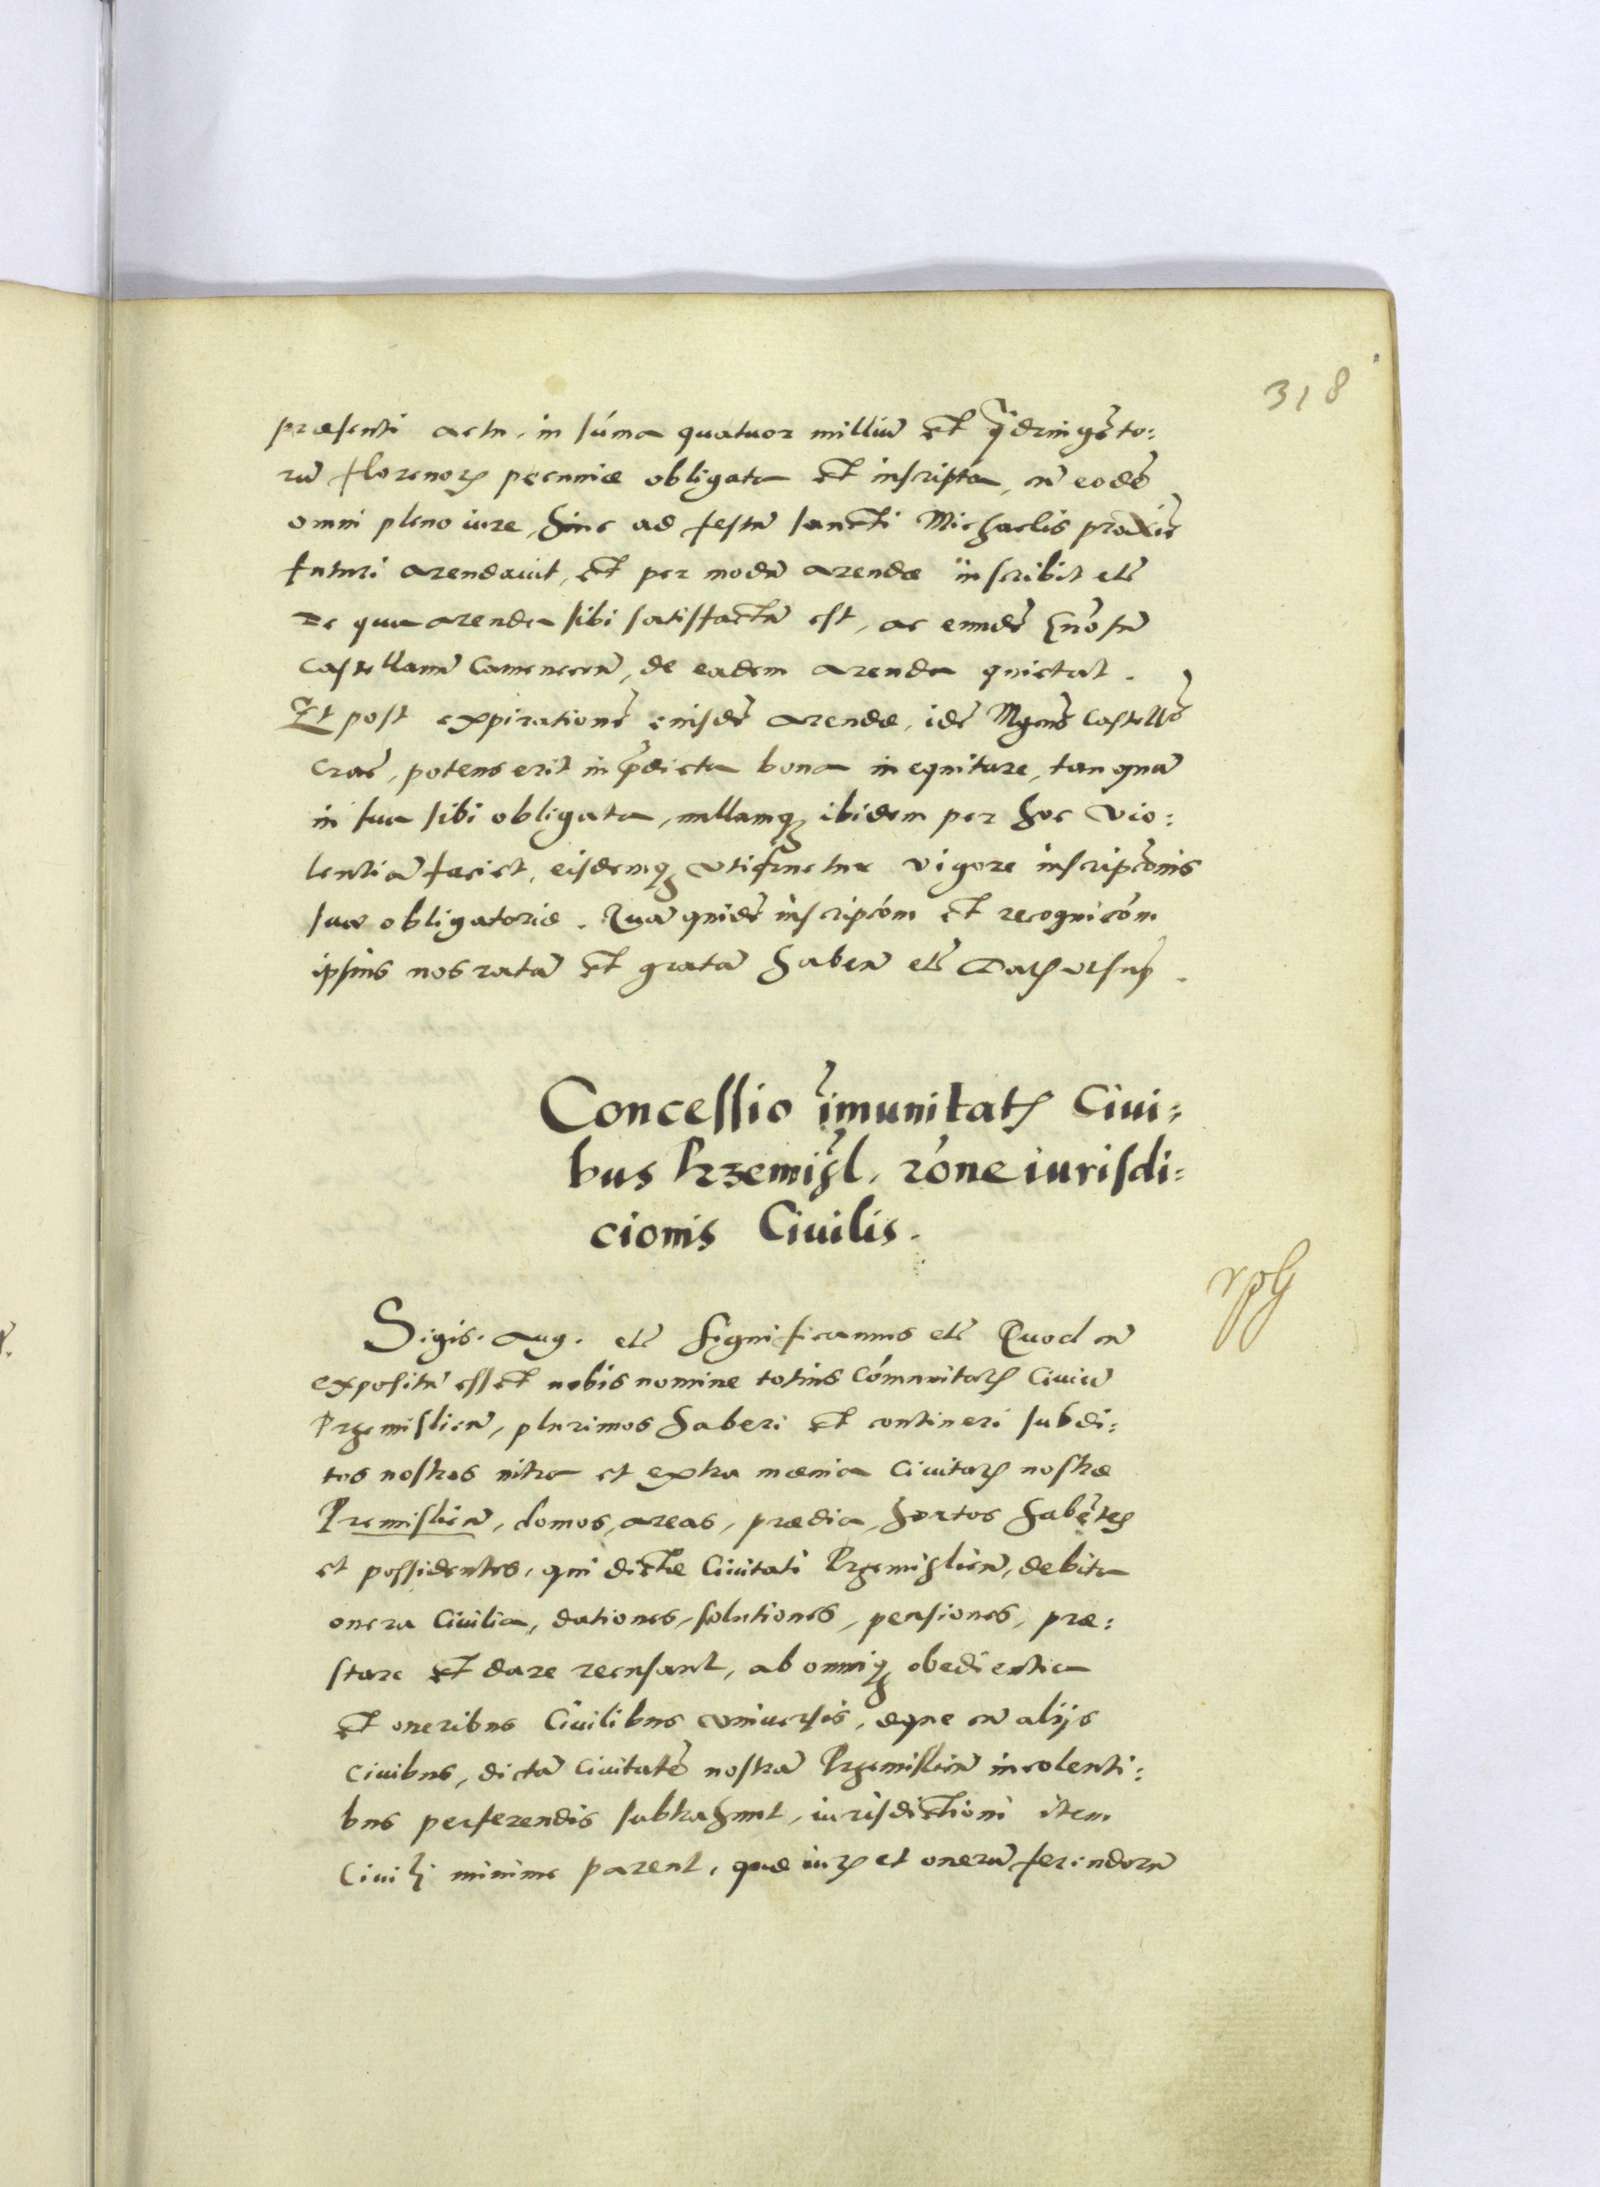 318
præsenti actu, in sum̃a quatuor milliũ et q̃dringẽto:
rũ florenorꝫ pecuniæ obligata et inscripta, cũ eodẽ
omni pleno iure, hinc ad festũ sancti Michaelis proxie
futuri arendauit, et per modũ arendæ inscribit etc̃
De qua arenda sibi satisfactũ est, ac eundẽ
Castellanũ Camenecen̄, de eadem arenda quietat.
Et post expirationẽ eiusdẽ arendæ, idẽ Mgcũs Castellũs
Crac̃, potens erit in p̃dicta bona inequitare, tanquã
in sua sibi obligata, nullamqꝫ ibidem per hoc vio:
lentiã faciet, eisdemqꝫ utifruetur vigore inscripc̃onis
suæ obligatoriæ. Quã quidẽ inscripc̃om et recognic̃om
ipsius nos ratã et gratã haben̄ etc̃ Datꝫ ut sup̃.
Concessio im̃unitatꝫ Ciui:
bus Przemisl. rõne iurisdi:
cionis Ciuilis.
Sigis. Aug. etc̃ Significamus etc̃ Quod cũ
expositũ esset nobis nomine totius Com̃unitatꝫ Ciuiũ
Przemislien̄, plurimos haberi et contineri subdi:
tos nostros intra et extra mænia Ciuitatꝫ nostræ
Premislien̄, domos, areas, prædia, hortos habẽtes
et possidentes, qui dictæ Ciuitati Przemislien̄, debita
onera Ciuilia, dationes, solutiones, pensiones, præ:
stare et dare recusant, ab omniqꝫ obedientia
et oneribus Ciuilibus vniuersis, æque cũ alijs
Ciuibus, dictã Ciuitatẽ nostrã Przemislien̄ incolenti:
bus perferendis subtrahunt, iurisdictioni item
Ciuili minime parent, quæ iurꝫ et onerũ ferendorũ